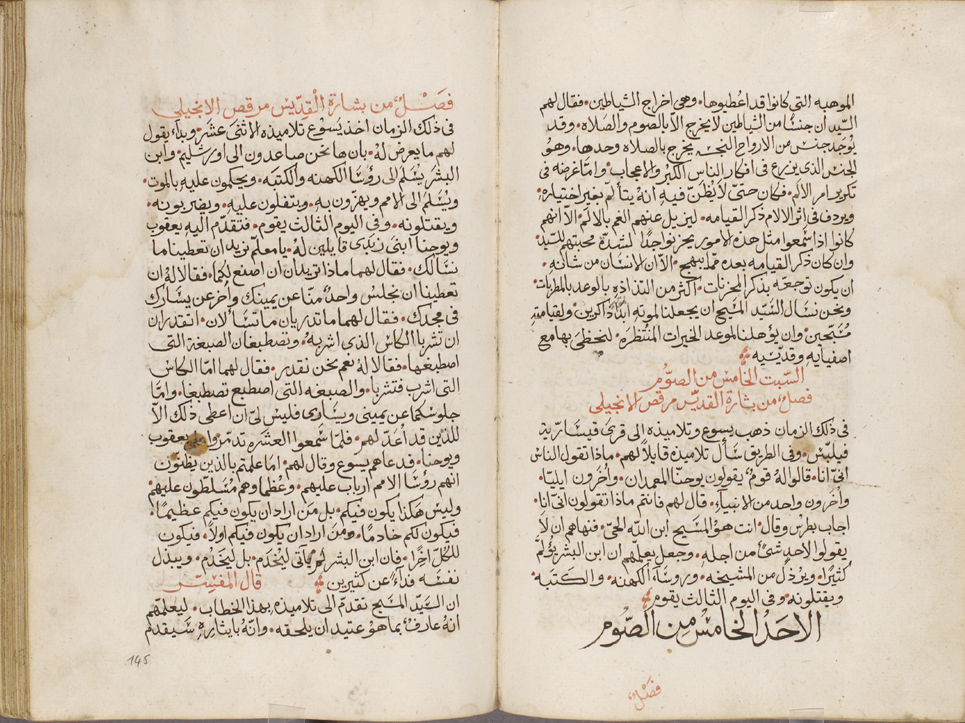 الموهبه التي كانوا قد اعْطيوها ٠ وهي اخراج الشياطين ٠ فقال لهم
السيّد ان جنسًا من الشياطين لا يخرج الا بالصوم والصلاه ٠ وقد
يُوجد جنس من الارواح النجسه يخرج بالصلاه وحدها ٠ وهو
الجنس الذي يزرع في افكار الناس الكبر والاعجاب ٠ وامّا غرضه في
تكرير امر الالم ٠ فكان حتّى لا يُظَنّ فيهِ انّهُ يتألّم بغير اختياره ٠
ويردف في اثر الالام ذكر القيامه ٠ ليزيل عنهم الغم بالالم ٠ لانهم
كانوا اذا سَمعوا مثل هذه الامور يحزنوا جدًا لشدّة محبتهم للسيّد ٠
وان كان ذكر القيامه بعده ممّا يبهج ٠ الّا ان الانسان من شانه
ان يكون توجعه بذكر المحزنات ٠ اكثر من التذاذه بالوعد بالمطربات ٠
ونحن نسَال السّيّد المسَيح ان يجعلنا لموته ابدًا ذاكرين ٠ ولقيامتهِ
مُسَبّحين ٠ وان يؤهلنا لموعد الخيرات المُنتظره ٠ لنحظى بها مع
اصفيائه وقدّيسَيه
السَبت الخامسْ من الصوُم
فصلٌ من بشارة القديسّ مرقص الانجيلي
في ذلك الزمان ذهب يسوع وتلاميذه الى قرى قيسَاريّة
فيلبّس ٠ وفي الطريق سَأل تلاميذه قايلًا لهم ٠ ماذا تقول الناس
انّي انا ٠ قالوا لهُ قومٌ يقولون يوحنّا المعمدان ٠ وآخرون ايليّا ٠
وآخرون واحد من الانبياءِ ٠ قال لهم فانتم ماذا تقولون انّي انا ٠
اجاب بطرس وقال ٠ انت هوَ المسَيح ابن الله الحيّ ٠ فنهاهم ان لَا
يقولوا لاحدٍ شيئًا من اجله ٠ وجعل يعلمهم ان ابن البشر يؤلَم
كثيرًا ٠ ويرُذل من المشيخه ٠ وروسَآء الكهنه ٠ والكتبه ٠
ويقتلونه وفي اليوم الثالث يقوم
الاحَدُ الخامسْ مِن الصَّوُم
فصْلٌ
فَصْلٌ من بشارة القِدّيسْ مرقص الانجيلي
في ذلك الزمان اخذ يَسُوع تلاميذه الاثنى عشَر ٠ وبدأ يقول
لهم ما يعرض لهُ ٠ بان ها نحن صاعدون الى اورشليم ٠ وابن
البشر يُسَلم الى رؤسَا الكهنه والكتبَه ٠ ويحكمون عليهِ بالموت ٠
ويُسَلم الى الامم ويهزّون به ٠ ويتفلون عليه ٠ ويضربونه ٠
ويقتلونه ٠ وفي اليوم الثالث يقوم ٠ فتقدّم اليه يعقوب
ويوحنّا ابنَي زبَدى قايلين لهُ ٠ يا معلّم نريد ان تعطينا ما
نسَالك ٠ فقال لهما ماذا تريدان ان اصنع لكما ٠ فقالا لهُ ان
تعطينا ان نجلسْ واحدٌ منّا عن يمينك وآخر عن يسَارك
في مجدك ٠ فقال لهما ما تدريان ما تسَألان ٠ اتقدران
ان تشربا الكاس الذي اشربهُ ٠ وتصطبغان الصبغة التى
اصطبغها ٠ فقالا لهُ نعم نحن نقدر ٠ فقال لهما امّا الكاسْ
التى اشرب فتشربا ٠ والصبغه التى اصطبغ تصطبغا ٠ وامّا
جلوسكما عن يميني ويسَارى فليسَ لي ان اعطى ذلك الّا
للّذين قد اُعدّ لهم ٠ فلمّا سَمعوا العشره تذمّروا يعقوب
ويوحنا ٠ فدعاهم يسوع وقال لهم ٠ اما علمتم بالذين يظنّون
انهم رؤسَا الامم ارباب عليهم ٠ وعُظماوهم مُسَلّطون عليهم
وليس هكذا يكون فيكم ٠ بل من اراد ان يكون فيكم عظيمًا ٠
فيكون لكم خادمًا ٠ ومَن اراد ان يكون فيكم اوّلًا ٠ فيكون
للكل آخرًا ٠ فان ابن البشر لم يأتى ليُخدَم ٠ بل ليَخدُم ٠ ويبذل
نفسَه فداءً عن كثيرين قال المفسّر
ان السَيّد المسَيح تقدم الى تلاميذه بهذا الخطاب ٠ ليعلمهم
انهُ عارفٌ بما هوَ عتيد ان يلحقه ٠ وانّهُ بايثارهِ سَيقدم
145